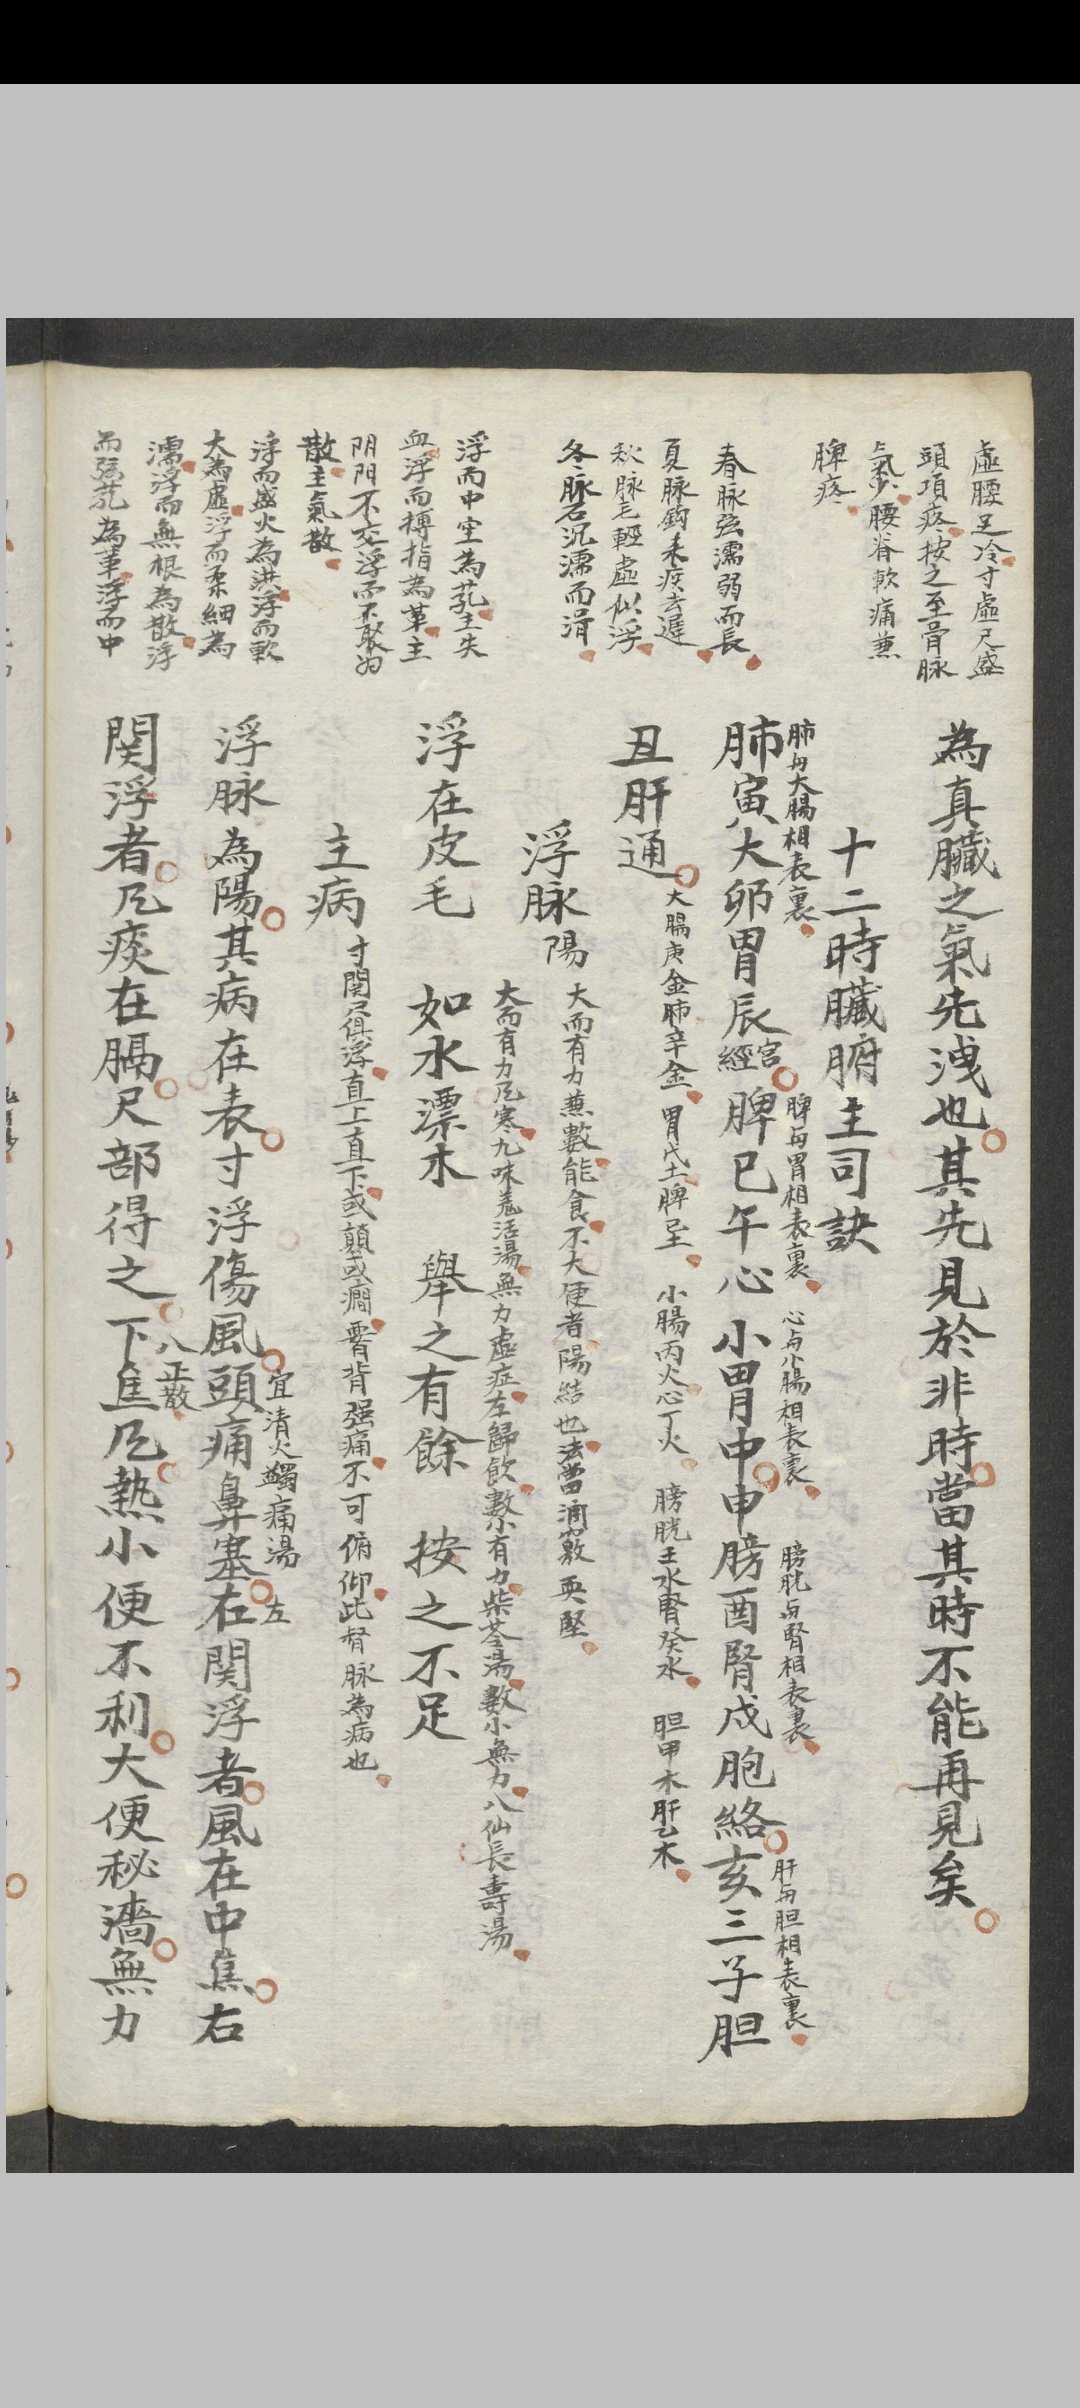 虛腰足冷寸虛尺盛
頭項疼按之至骨脉
氣少腰脊軟痛兼
脾疼
春脉弦濡弱而長
夏脉鈎来疾去遲
秋脉毛輕虛似浮
冬脉石沉濡而滑
浮而中空為芤主失
血浮而搏指為革主
阴阳不交浮而不聚为
散主氣散
浮而盛火為洪浮而軟
大為虛浮而柔細為
濡浮而無根為散浮
而弦芤為革浮而中
為真臟之氣先洩也其先見於非時當其時不能再見矣
十二時臟腑主司訣
肺与大腸相表裏 脾与胃相表裏 心与小腸相表裏 膀胱与腎相表裏 肝与胆相表裏
肺寅大卯胃辰宮經脾巳午心小胃中申膀酉腎戌胞絡亥三子胆
丑肝通 大腸庚金肺辛金 胃戊土脾 小腸丙火心丁火 膀胱壬水腎癸水 胆甲木肝乙木
浮脉 陽 大而有力兼數能食不大便者陽結也法當通
大而有力風寒九味羌活湯無力虛症左歸飲數小有力柴苓湯數小無力八仙長壽湯
浮在皮毛 如水漂木 舉之有餘 按之不足
主病 寸関尺俱浮直上直下或顛或癇腰背强痛不可俯仰此督脉為病也
浮脉為陽其病在表寸浮傷風頭痛鼻塞右関浮者風在中焦右
宜清火蠲痛湯 左
関浮者风痰在膈尺部得之下焦风熱小便不利大便秘濇無力
八正散